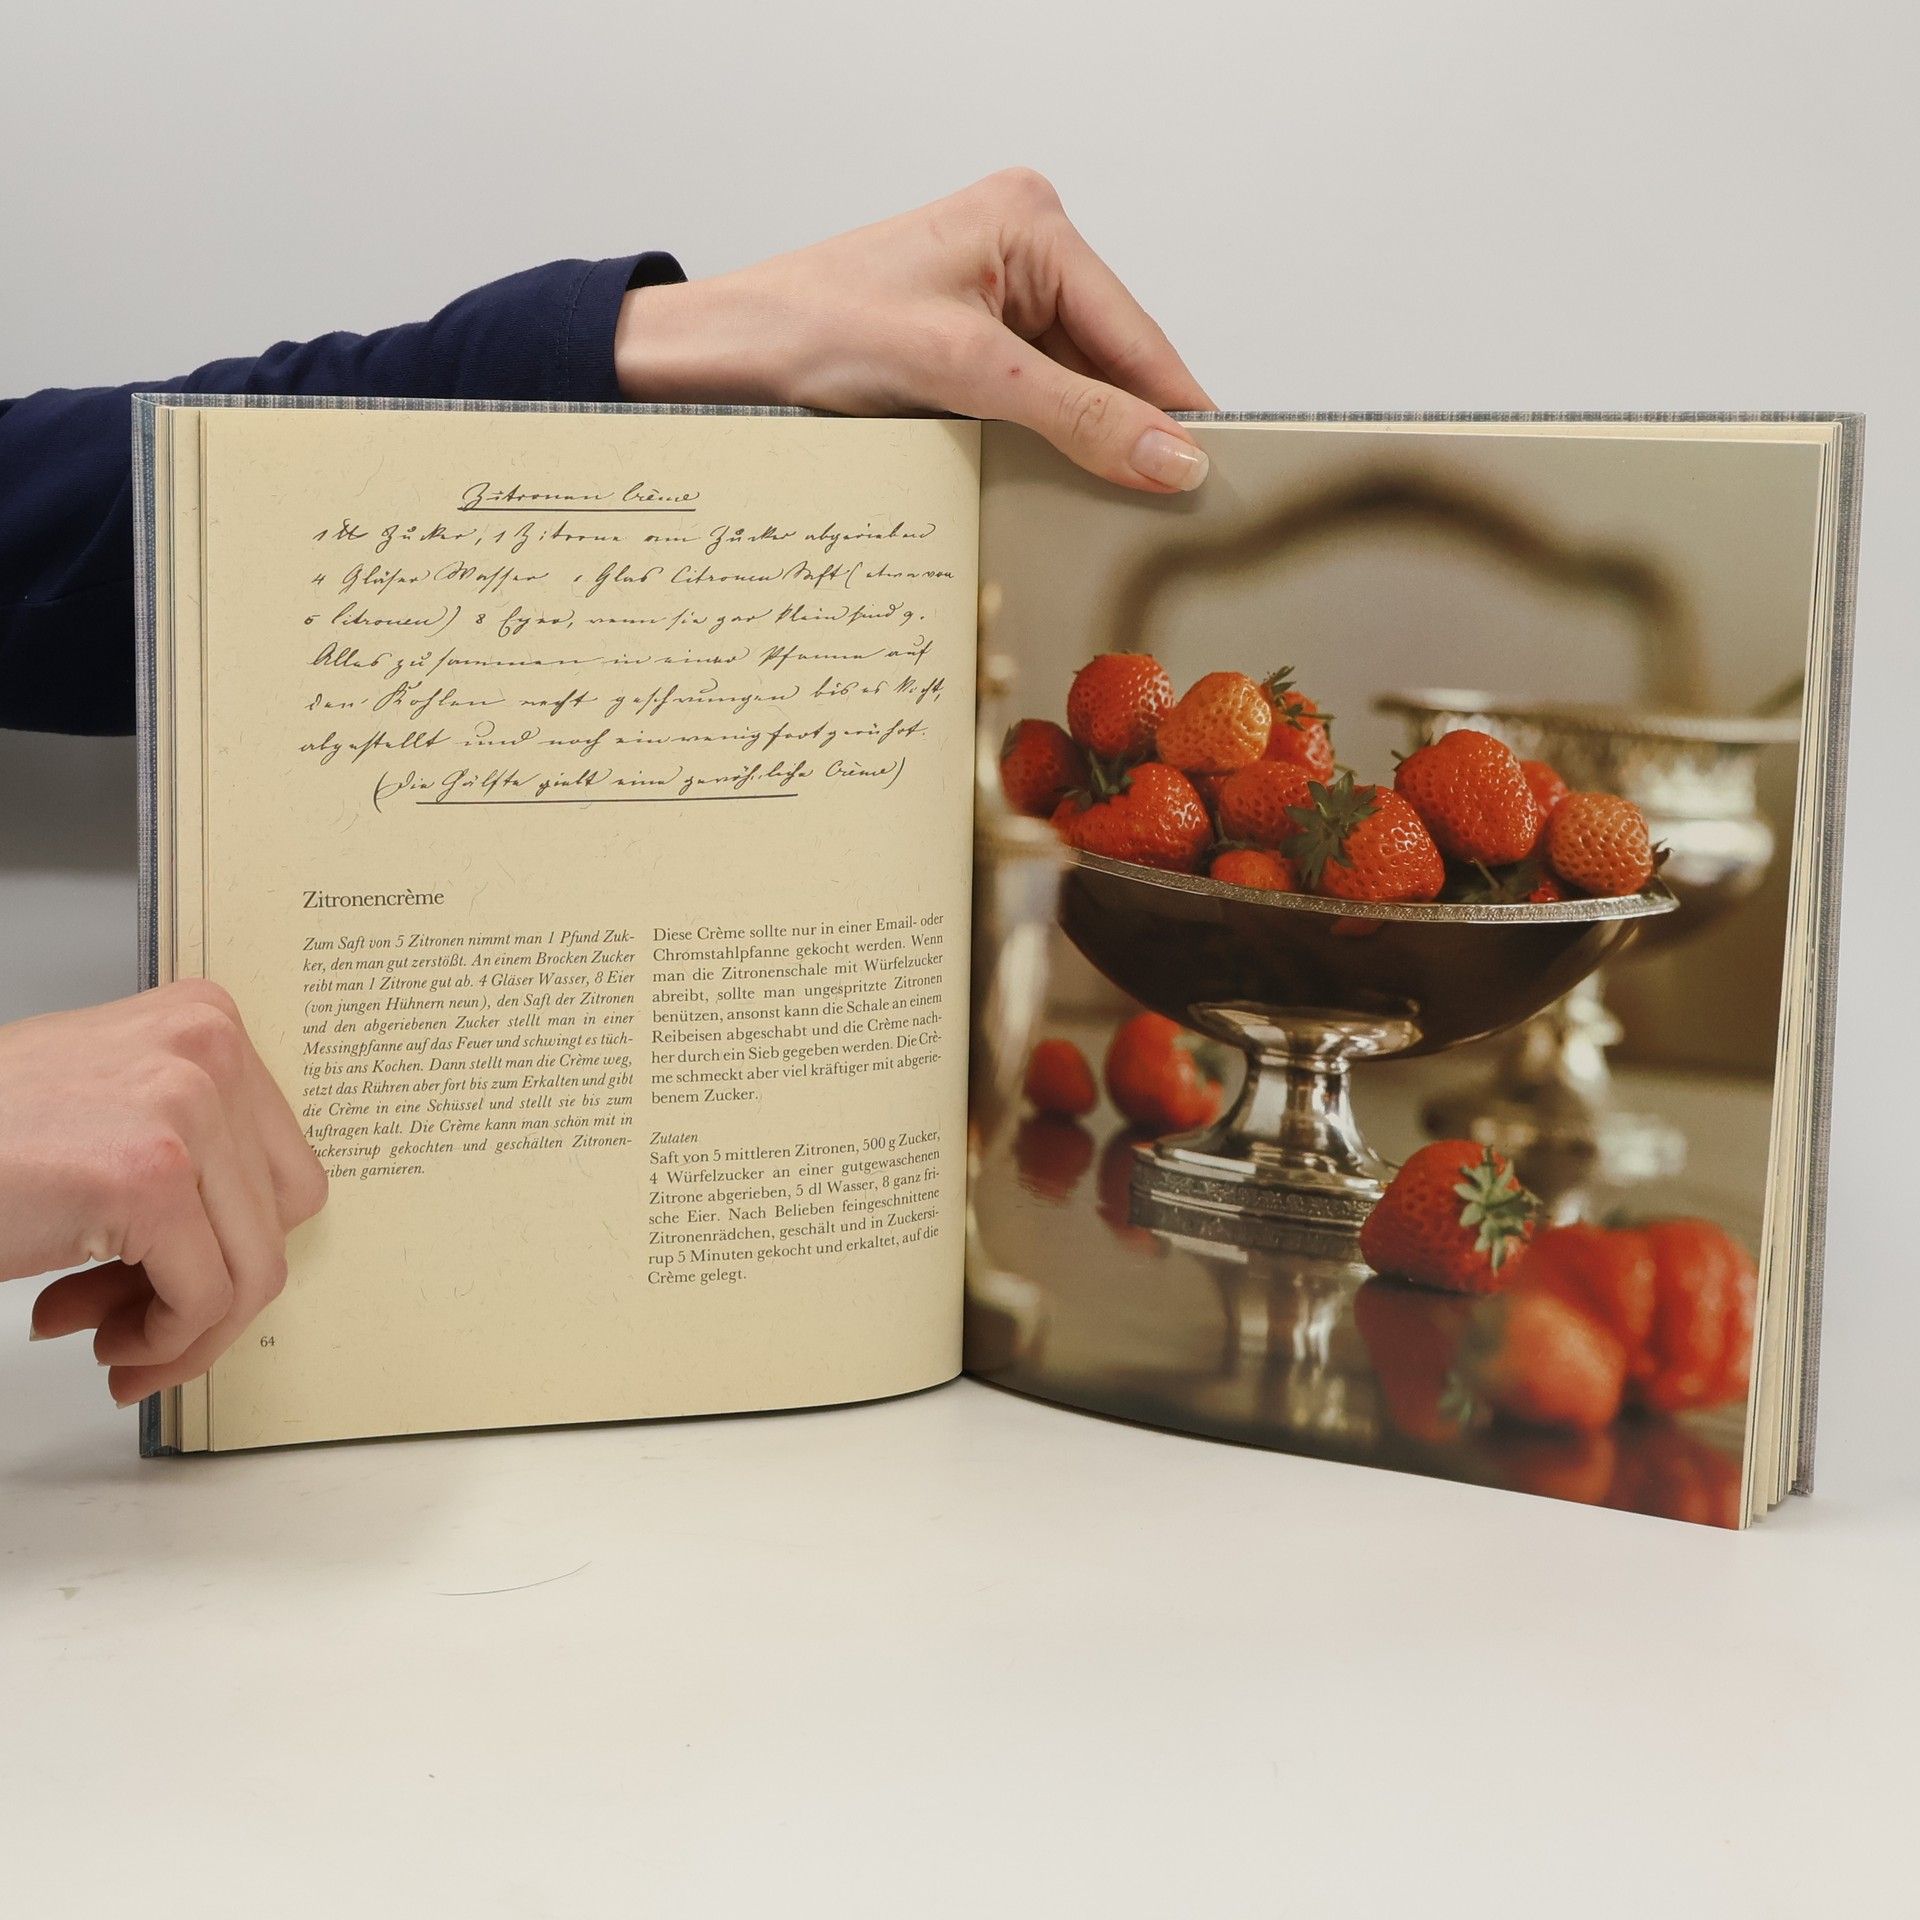 Zitronen Crème
1 ℔ Zucker, 1 Zitrone am Zucker abgerieben
4 Gläser Wasser 1 Glas Citronen Saft (etwa von
5 Citronen) 8 Eyer, wenn sie gar klein sind 9.
Alles zusammen in einer Pfanne auf
den Kohlen recht geschwungen bis es kocht,
abgestellt und noch ein wenig fort gerührt.
(Die Hälfte giebt eine gewöhnliche Crème)
Zitronencrème
Zum Saft von 5 Zitronen nimmt man 1 Pfund Zuk-
ker, den man gut zerstößt. An einem Brocken Zucker
reibt man 1 Zitrone gut ab. 4 Gläser Wasser, 8 Eier
(von jungen Hühnern neun), den Saft der Zitronen
und den abgeriebenen Zucker stellt man in einer
Messingpfanne auf das Feuer und schwingt es tüch-
tig bis ans Kochen. Dann stellt man die Crème weg,
setzt das Rühren aber fort bis zum Erkalten und gibt
die Crème in eine Schüssel und stellt sie bis zum
Auftragen kalt. Die Crème kann man schön mit in
Zuckersirup gekochten und geschälten Zitronen-
eiben garnieren.
Diese Crème sollte nur in einer Email- oder
Chromstahlpfanne gekocht werden. Wenn
man die Zitronenschale mit Würfelzucker
abreibt, sollte man ungespritzte Zitronen
benützen, ansonst kann die Schale an einem
Reibeisen abgeschabt und die Crème nach-
her durch ein Sieb gegeben werden. Die Crè-
me schmeckt aber viel kräftiger mit abgerie-
benem Zucker.
Zutaten
Saft von 5 mittleren Zitronen, 500 g Zucker,
4 Würfelzucker an einer gutgewaschenen
Zitrone abgerieben, 5 dl Wasser, 8 ganz fri-
sche Eier. Nach Belieben feingeschnittene
Zitronenrädchen, geschält und in Zuckersi-
rup 5 Minuten gekocht und erkaltet, auf die
Crème gelegt.
64